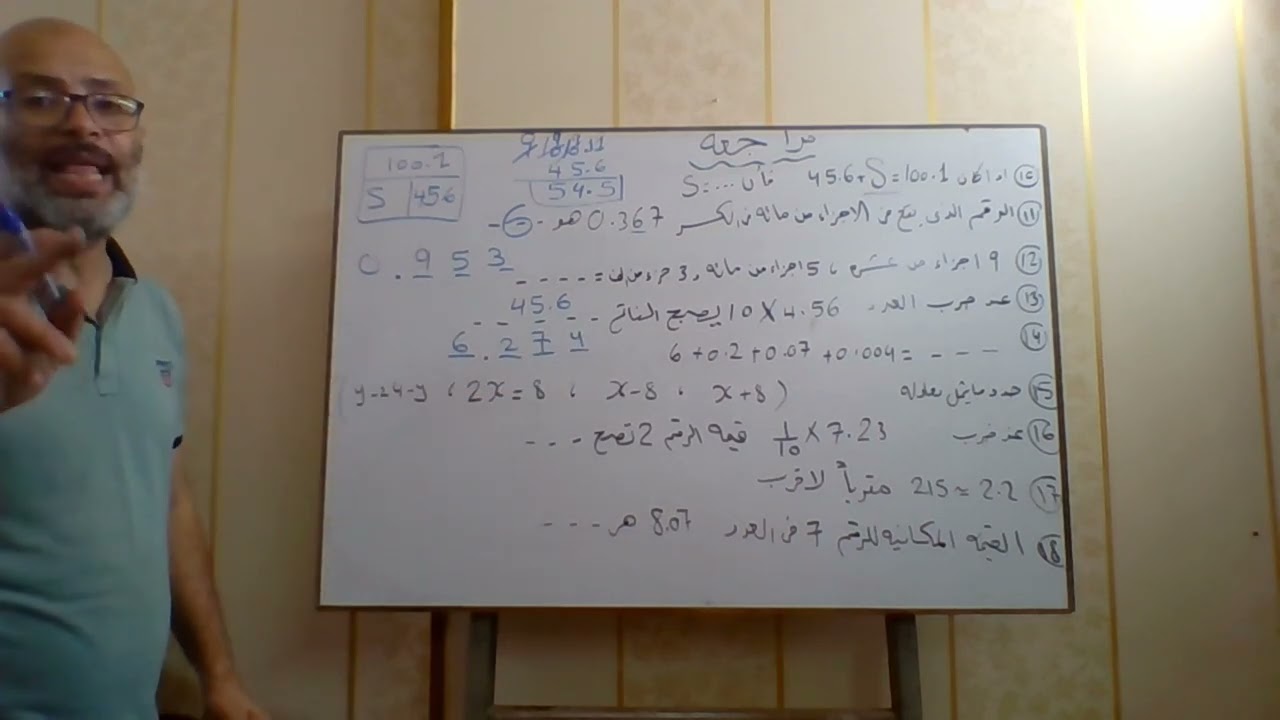 مراجعه
⑩ اذا كان 45.6+S=100.1 فأن S=....
100.1
S 45.6
45.6
54.5
⑪ الرقم الذى يقع فى الاجزاء من مائه فى الكسر 0.367 هو - 6 -
⑫ 9 اجزاء من عشره ، 5 اجزاء من مائه ، 3 جزء من الف = - - - -
0.953
⑬ عند ضرب العدد 4.56 X 10 يصبح الناتج - - - - -
45.6
⑭ 6+0.2+0.07+0.004= - - -
6.274
⑮ حدد مايمثل معادله (x+8 ، x-8 ، 2x=8 ، y-24-y
⑯ عند ضرب 7.23 X 1/10 قيمه الرقم 2 تصبح - - -
⑰ 2.2 ≈ 215 مقرباً لاقرب
⑱ القيمه المكانيه للرقم 7 فى العدد 8.07 هى - - -